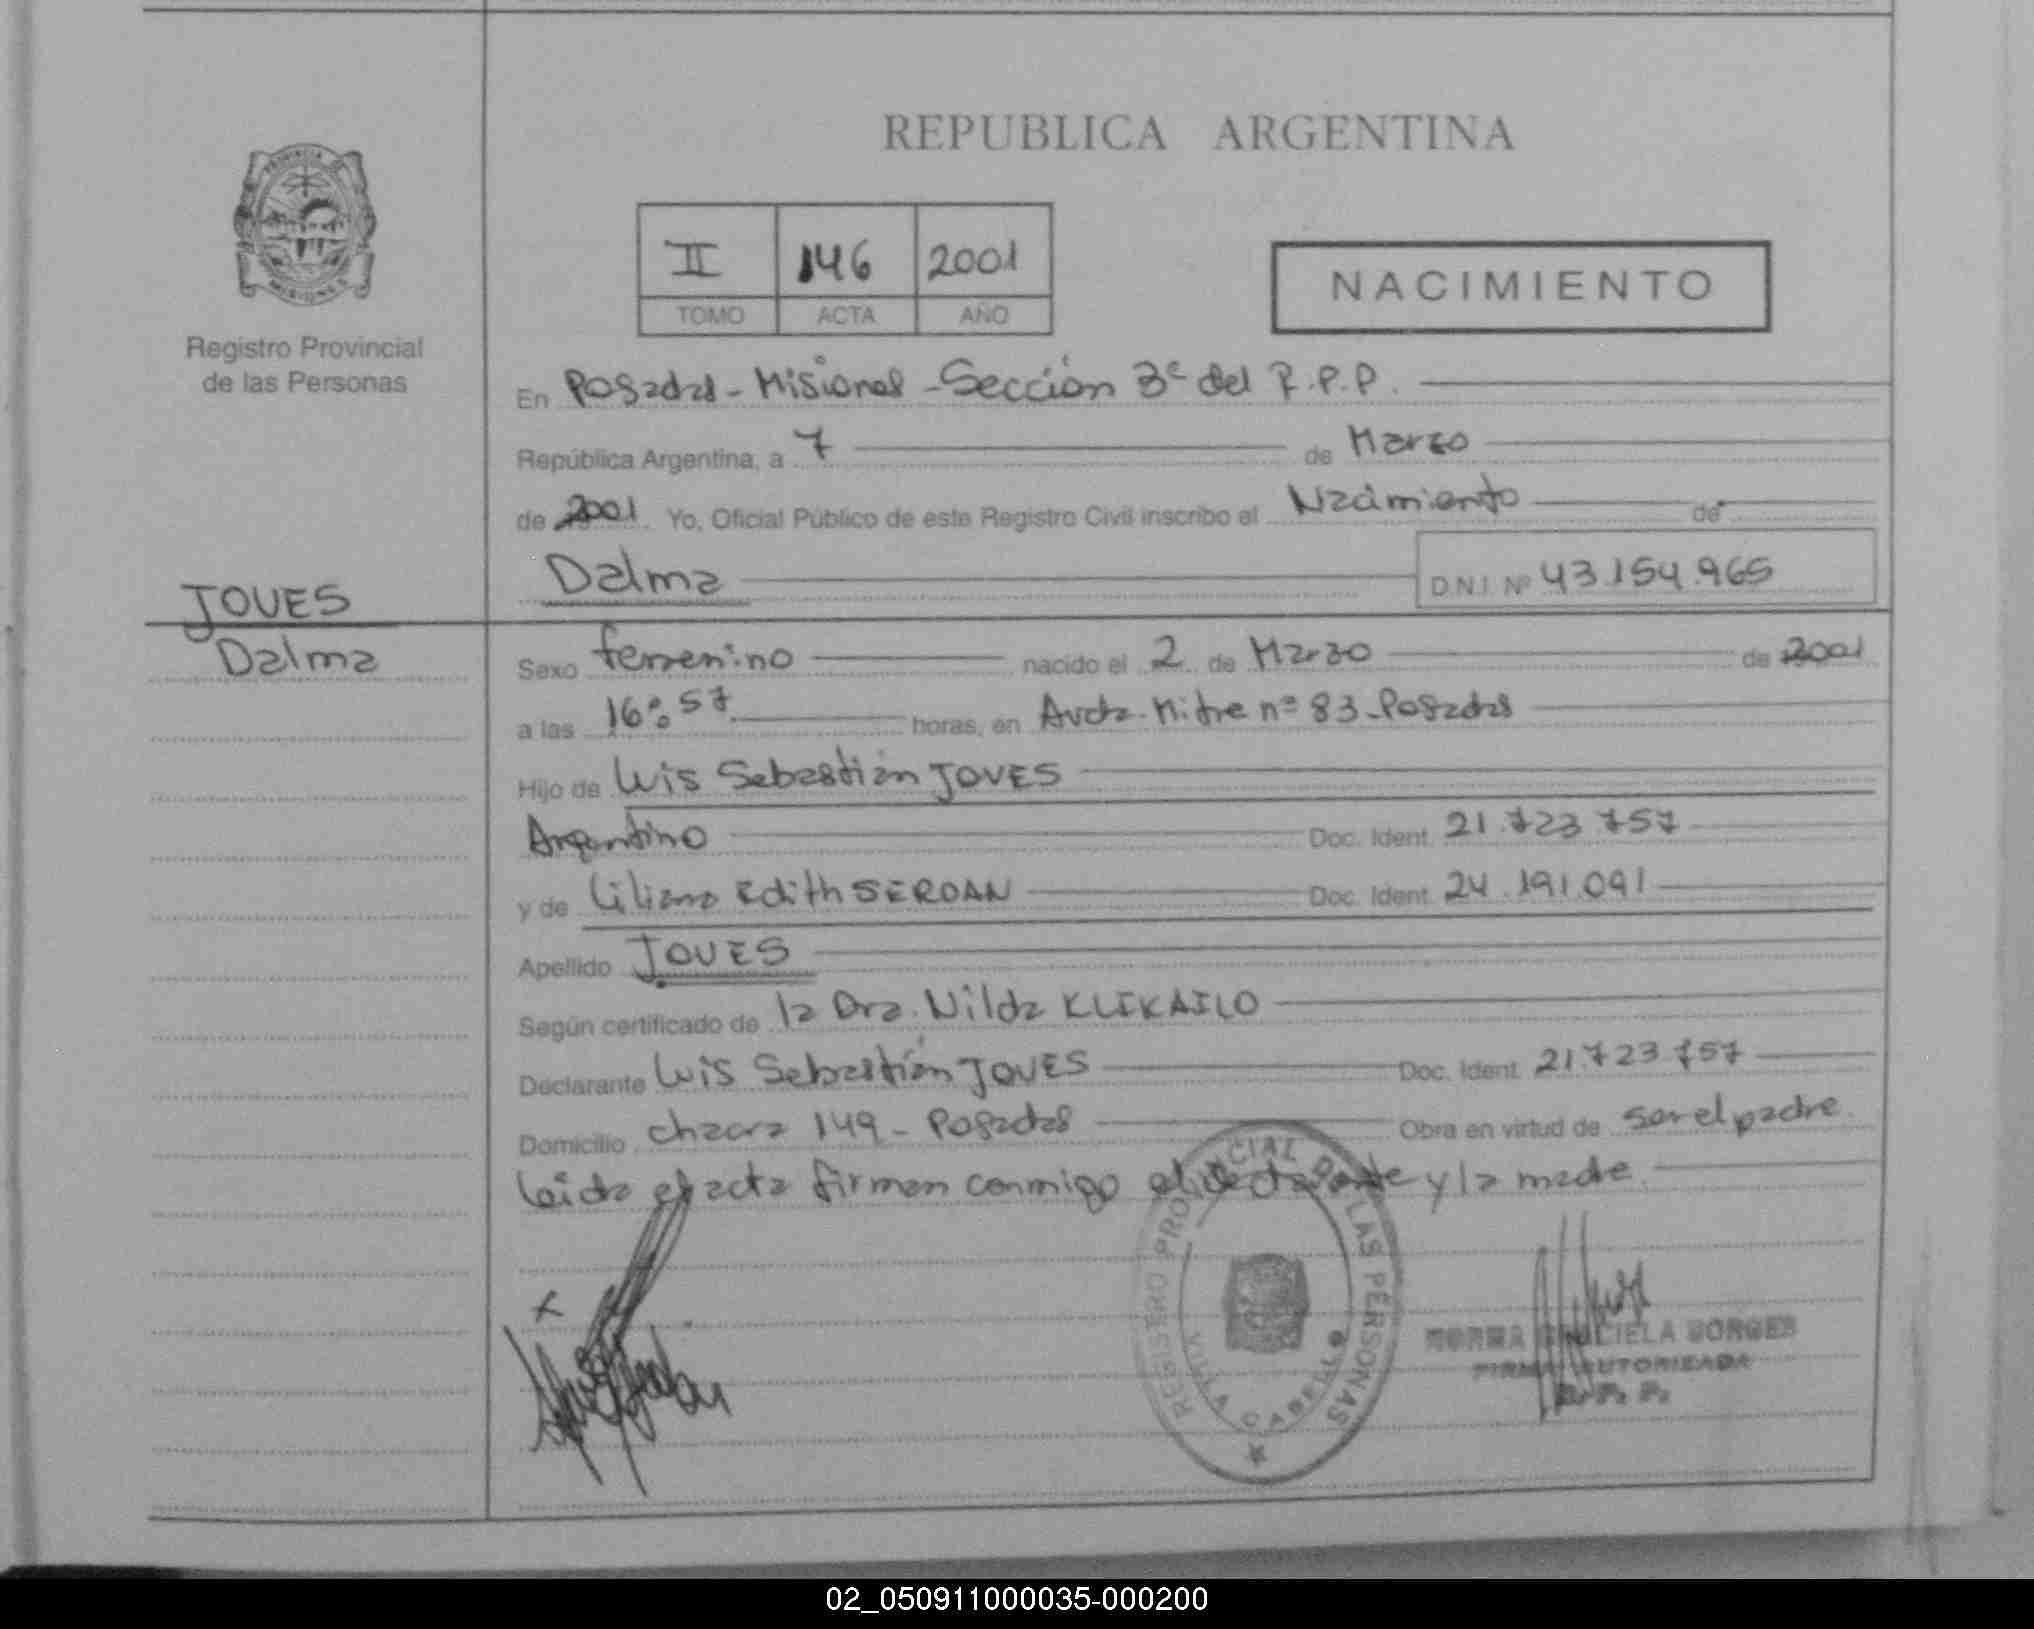 REPUBLICA ARGENTINA
PROVINCIA DE
MISIONES
Registro Provincial
de las Personas
II 146 2001
TOMO ACTA AÑO
NACIMIENTO
En Posadas - Misiones - Sección 3ª del R.P.P.
República Argentina, a 7 de Marzo
de 2001 Yo, Oficial Público de este Registro Civil inscribo el Nacimiento de
Dalma D.N.I. Nº 43.154.965
JOVES
Dalma
Sexo femenino nacido el 2 de Marzo de 2001
a las 16:57 horas, en Avda. Mitre nº 83 - Posadas
Hijo de Luis Sebastián JOVES
Argentino Doc. Ident. 21.723.757
y de Liliana Edith SERDAN Doc. Ident. 24.191.091
Apellido JOVES
Según certificado de la Dra. Nilda KLIKAILO
Declarante Luis Sebastián JOVES Doc. Ident. 21.723.757
Domicilio chacra 149 - Posadas Obra en virtud de ser el padre.
Leida el acta firman conmigo el declarante y la madre.
REGISTRO PROVINCIAL DE LAS PERSONAS
VILLA CABELLO
NORMA GRACIELA BORGES
FIRMA AUTORIZADA
R. P. P.
02_050911000035-000200